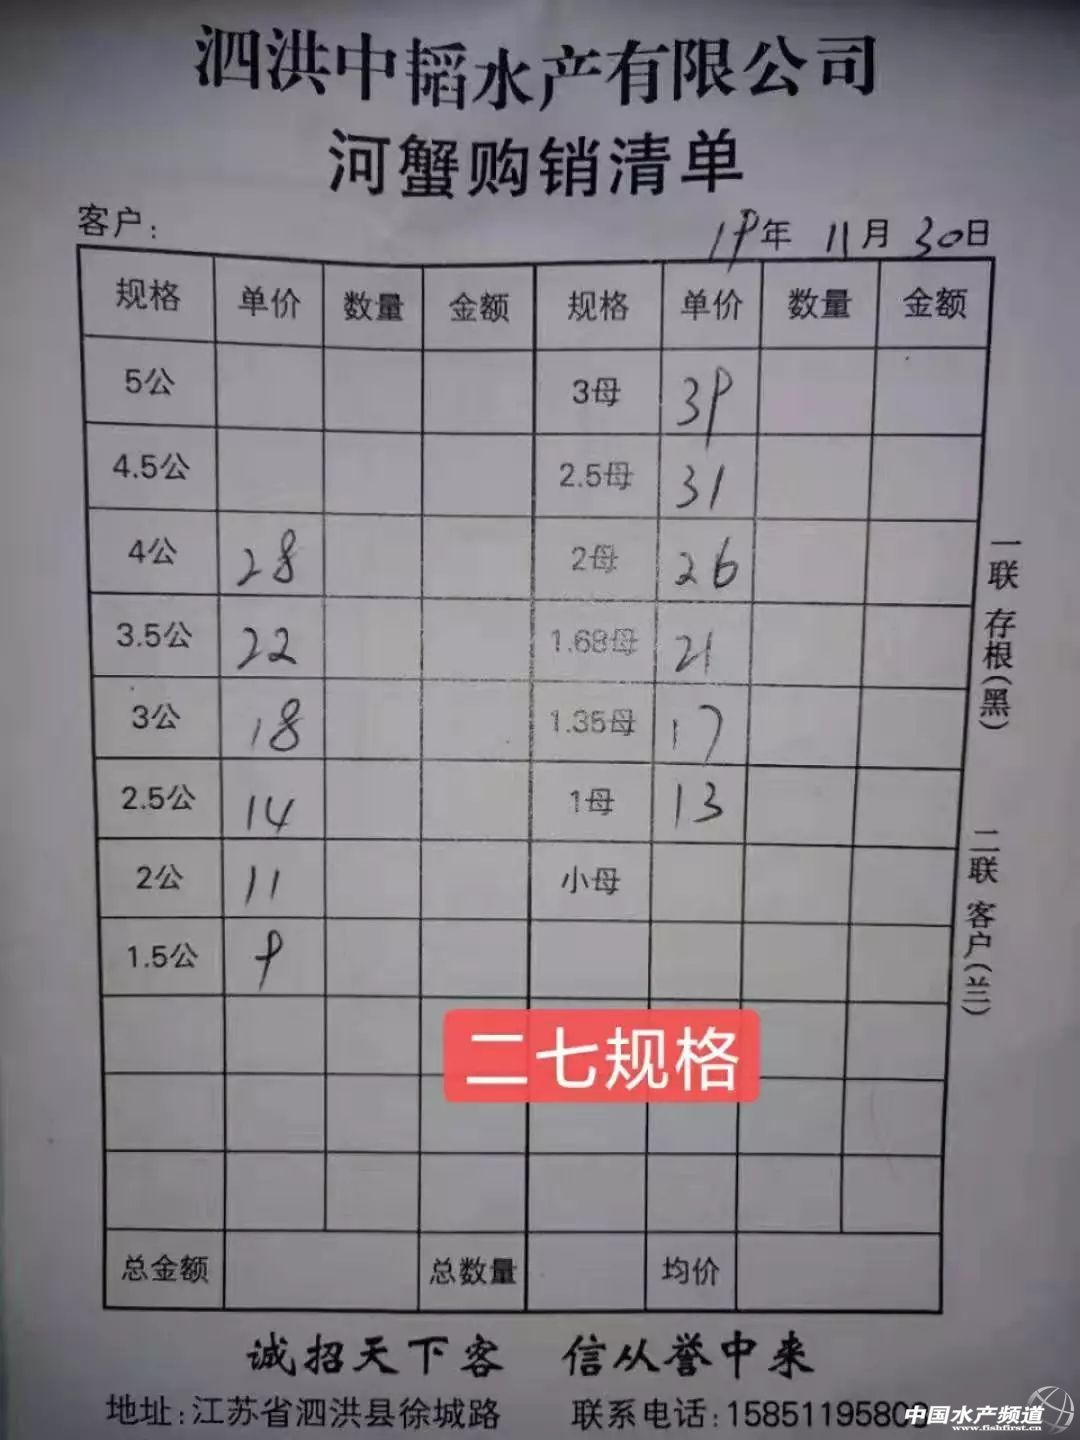 泗洪中韬水产有限公司
河蟹购销清单
客户: 19年 11月 30日
规格 单价 数量 金额 规格 单价 数量 金额
5公 3母 39
4.5公 2.5母 31
4公 28 2母 26
3.5公 22 1.68母 21
3公 18 1.35母 17
2.5公 14 1母 13
2公 11 小母
1.5公 9
二七规格
总金额 总数量 均价
一联 存根(黑)
二联 客户(兰)
诚招天下客 信从誉中来
地址:江苏省泗洪县徐城路 联系电话:1585119580
中国水产频道
www.fishfirst.cn